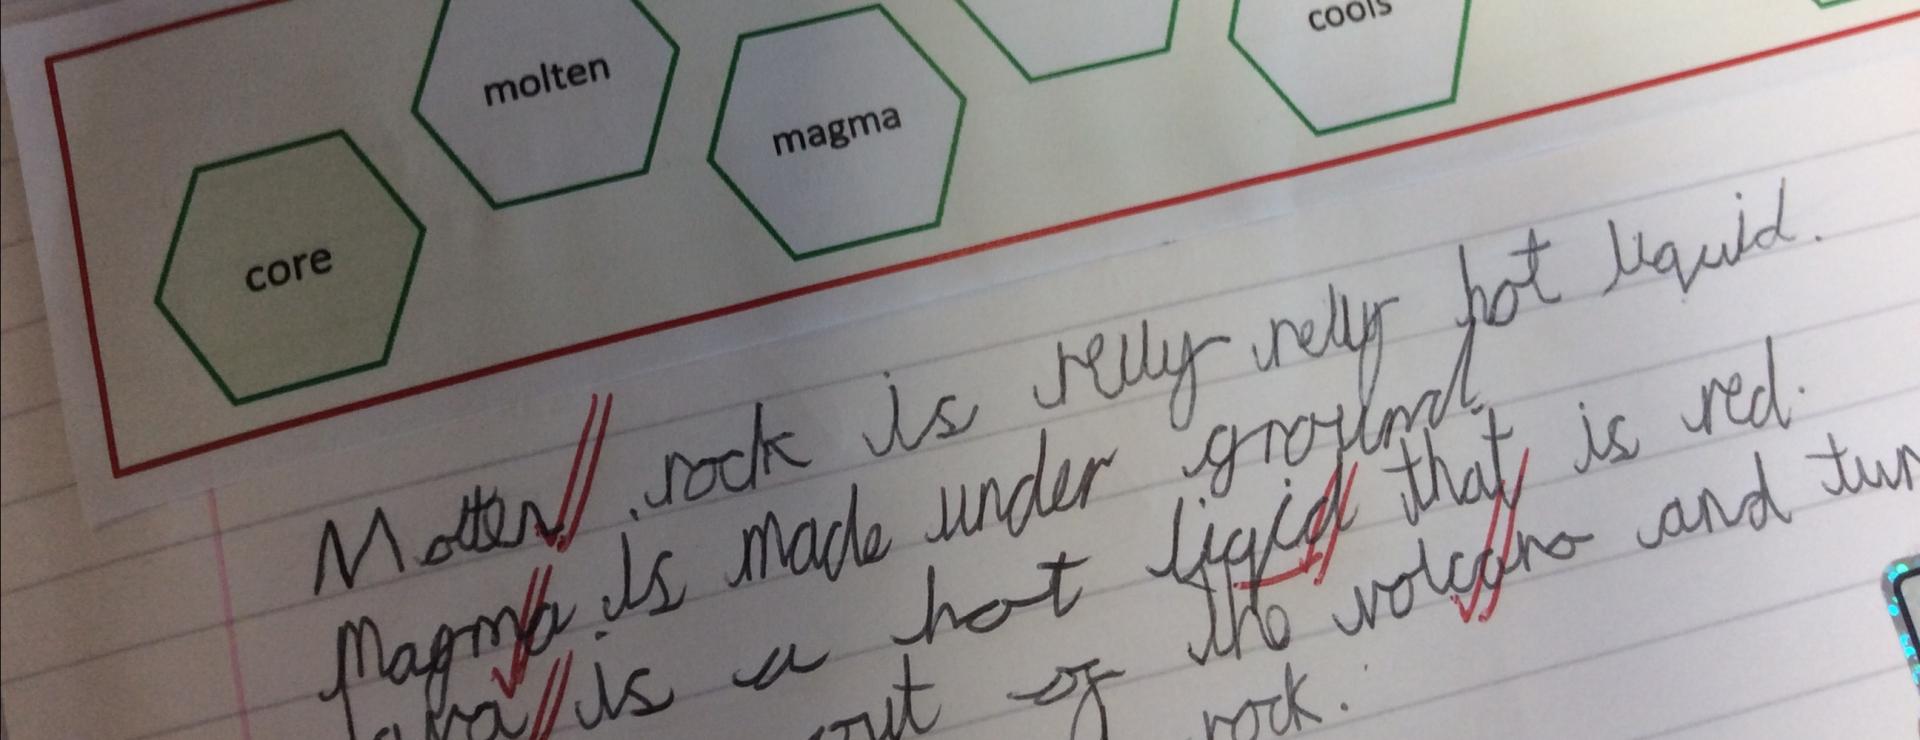 cools
molten
magma
core
Molten rock is relly relly hot liquid.
Magma is made under ground.
lava is a hot liqid that is red.
out of the volcano and
rock.